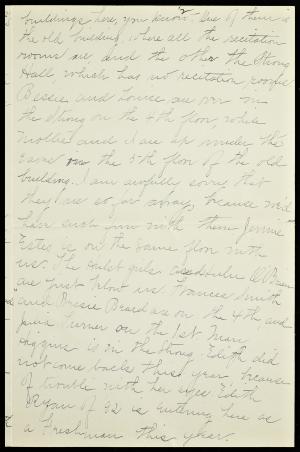 buildings here, you know. One of them is
the old building, where all the recitation
rooms are, and the other the Strong
Hall, which has no recitation rooms
Bessie and Louise are over in
the Strong on the 4th floor, while
Mollie and I are up under the
eaves on the 5th floor of the old
building. I am awfully sorry that
they are so far away, because we'd
have such fun with them. Jennie
Estes is on the same floor with
us. The girls
are just below us. Frances Smith
and Bessie Beard are on the 4th and
Turner on the 1st. Mary
Higgins is in the Strong. Edith did
not come back this year because
of trouble with her eyes. Edith
Ryan of 92 is entering here as
a Freshman this year.